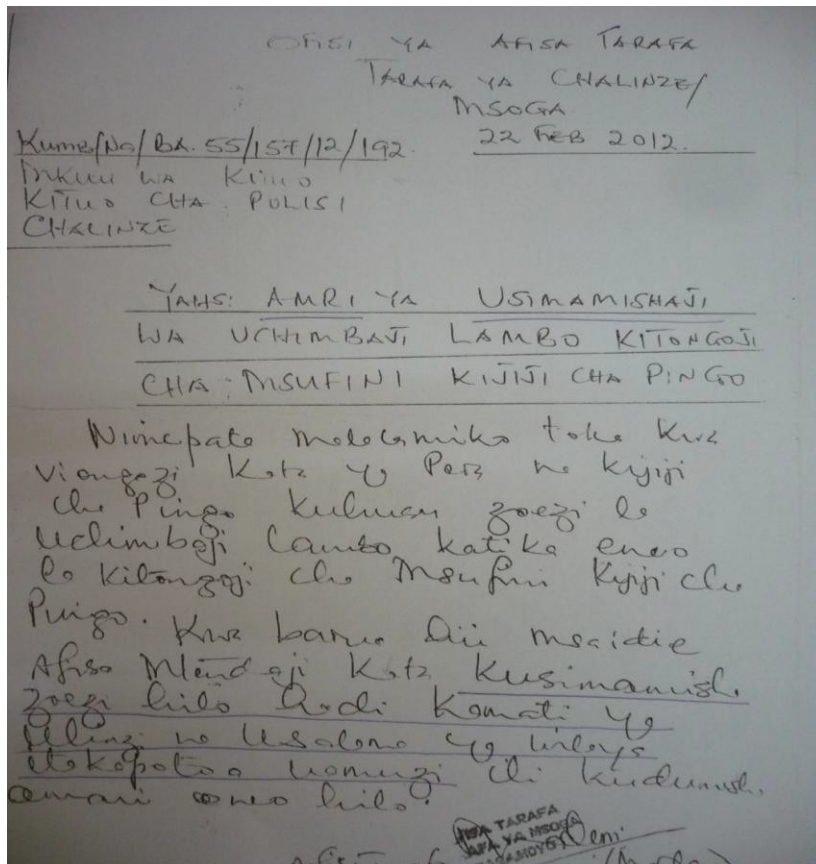 OFISI YA AFISA TARAFA
TARAFA YA CHALINZE/
MSOGA
22 FEB 2012.
Kumb/No/BA.55/157/12/192
MKUU WA KITUO
KITUO CHA POLISI
CHALINZE
YAHS: AMRI YA USIMAMISHAJI
WA UCHIMBAJI LAMBO KITONGOJI
CHA MSUFINI KIJIJI CHA PINGO
Nimepata malalamiko toka kwa
viongozi Kata ya Pera na kijiji
cha Pingo kuhusu zoezi la
uchimbaji lambo katika eneo
la kitongoji cha Msufini kijiji cha
Pingo. Kwa barua hii msaidie
Afisa Mtendaji Kata kusimamisha
zoezi hilo hadi Kamati ya
Ulinzi na Usalama ya Wilaya
itakapotoa uamuzi ili kudumisha
amani eneo hilo.
TARAFA
YA MSOGA